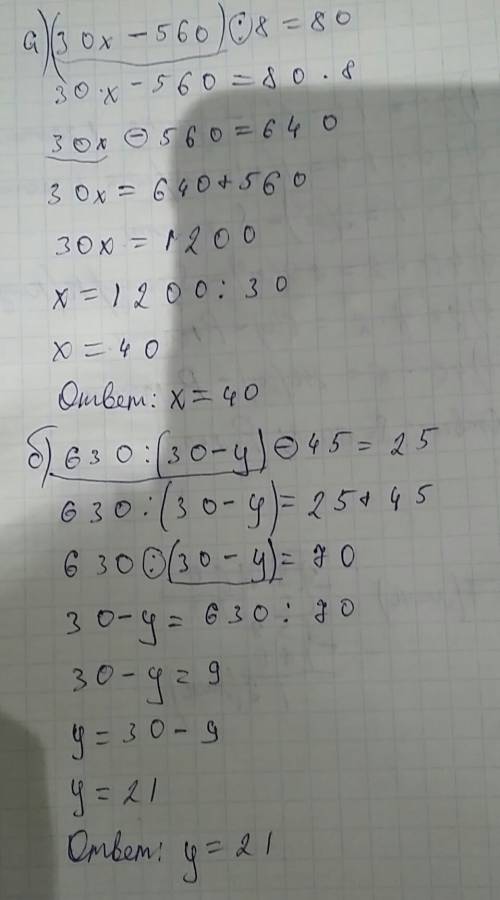 а) (30x - 560) : 8 = 80
30·x - 560 = 80·8
30x - 560 = 640
30x = 640 + 560
30x = 1200
x = 1200 : 30
x = 40
Ответ: x = 40
б) 630 : (30 - y) - 45 = 25
630 : (30 - y) = 25 + 45
630 : (30 - y) = 70
30 - y = 630 : 70
30 - y = 9
y = 30 - 9
y = 21
Ответ: y = 21